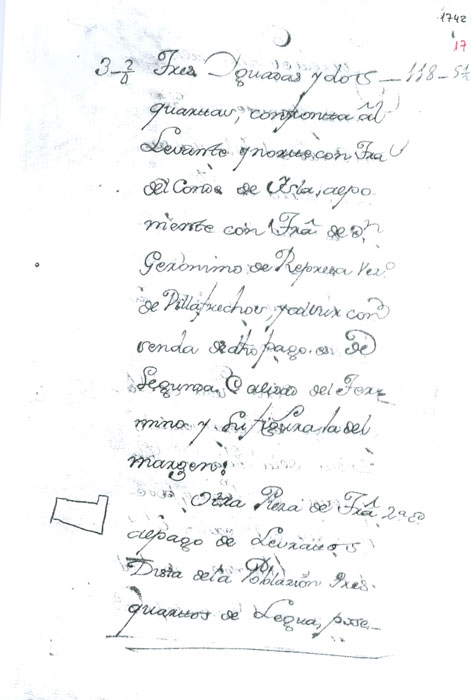 1742
17
3-2/4 Tres Yguadas y dos — 118-5½
quartas, confronta al
Levante y norte con Tra
del Conde de Isla, a el po
niente con Tra de Dn
Geronimo de Represa vezo
de Villafrechos, y a Durx con
senda de dho pago. es de
Segunda Calidad del Ter
mino y su figura la del
margen.
Otra Pieza de Tra 2a
a el pago de
Dista de la Poblazion tres
quartos de Legua, posse